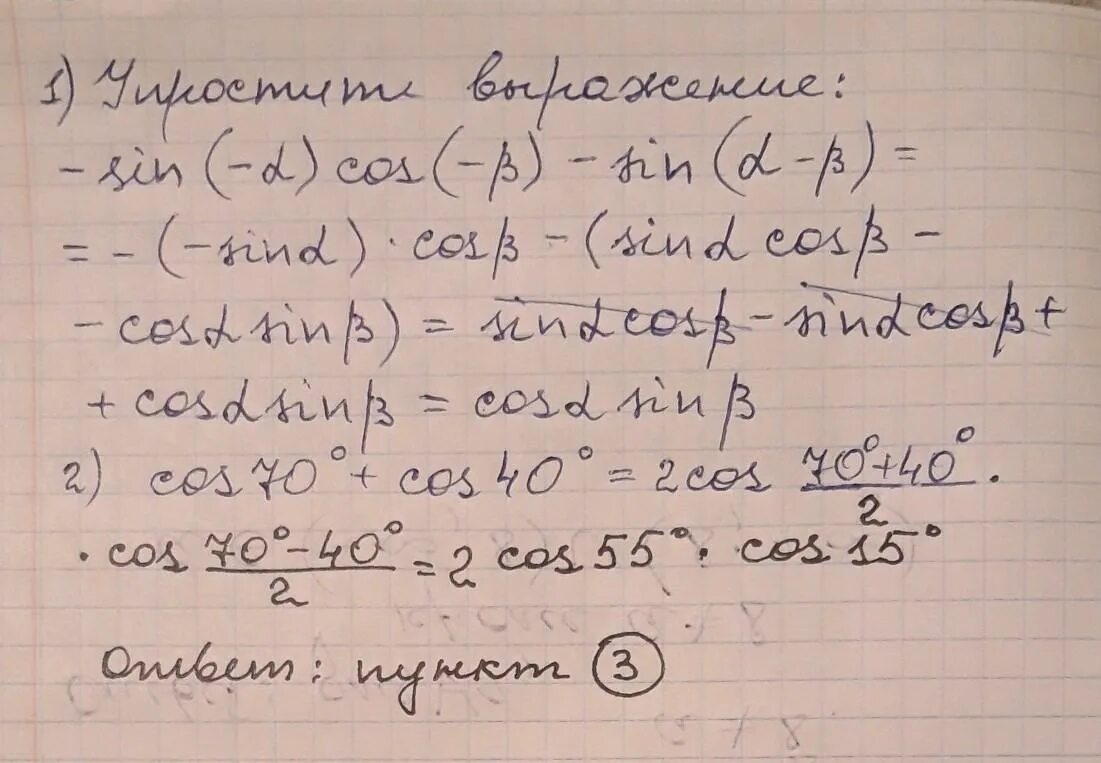 1) Упростить выражение:
-sin(-α)cos(-β) - sin(α-β) =
= -(-sinα)·cosβ - (sinα cosβ -
- cosα sinβ) = sinα cosβ - sinα cosβ +
+ cosα sinβ = cosα sinβ
2) cos70° + cos40° = 2cos (70°+40°)/2 ·
· cos (70°-40°)/2 = 2 cos55° · cos15°
Ответ: пункт 3